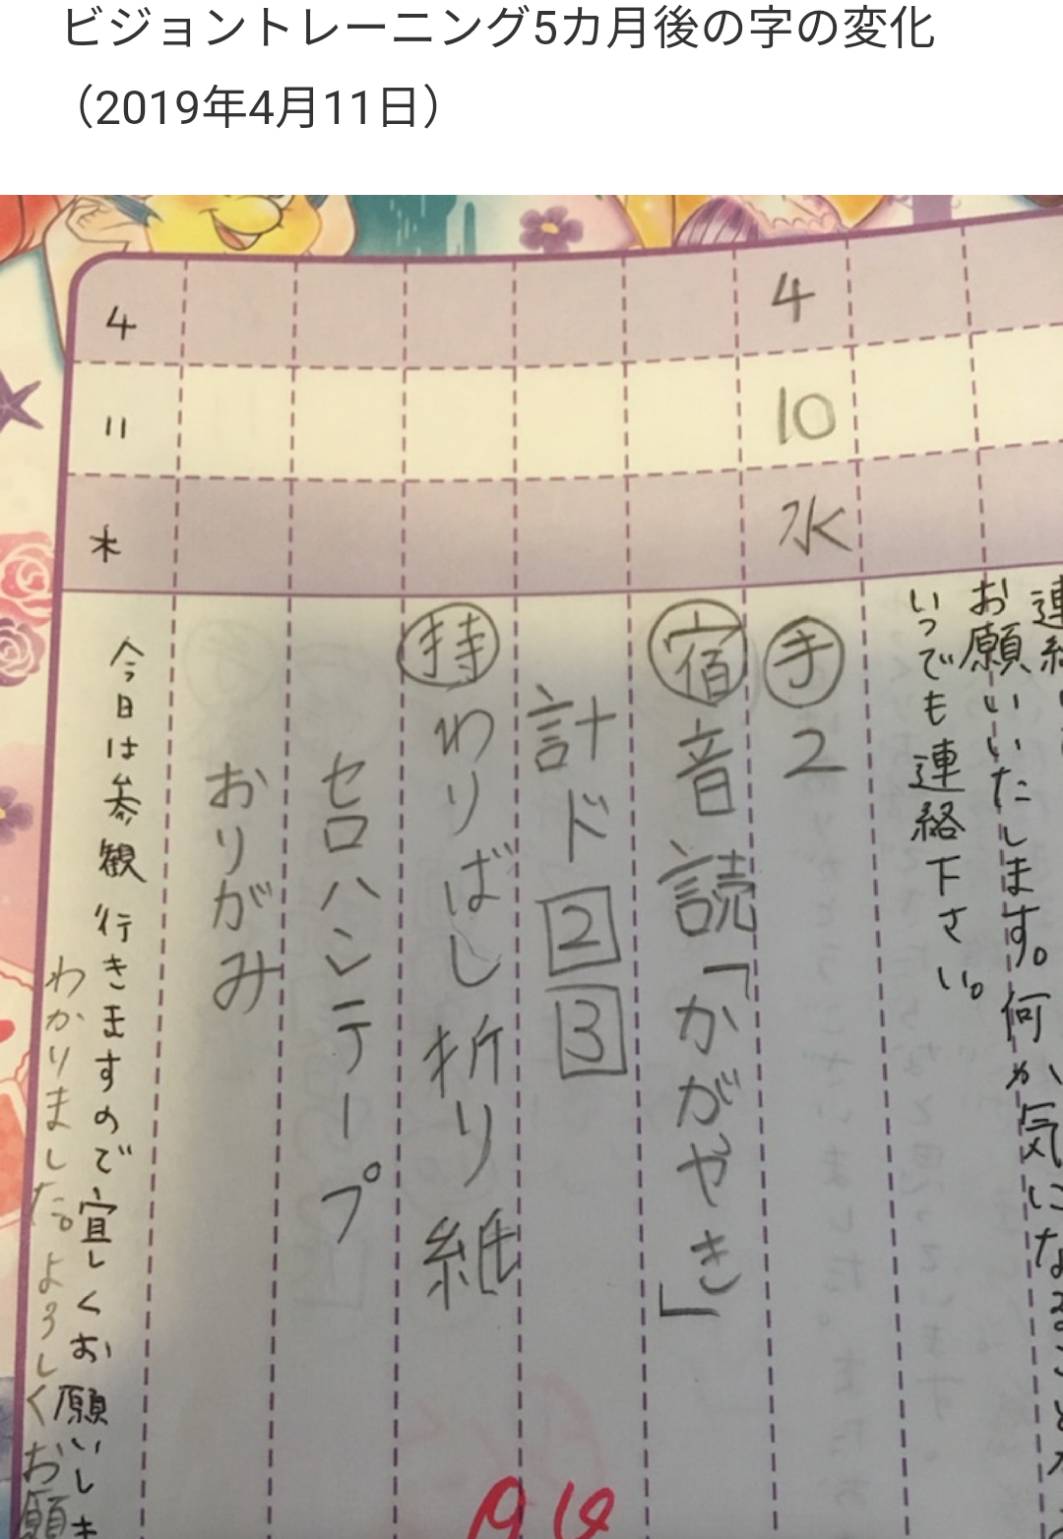 ビジョントレーニング5カ月後の字の変化
（2019年4月11日）
お願いいたします。何か気になること
いつでも連絡下さい。
4
10
水
手 2
宿 音読「かがやき」
計ド 2 3
持 わりばし 折り紙
セロハンテープ
おりがみ
4
11
木
今日は参観行きますので宜しくお願いしま
わかりました。よろしくお願